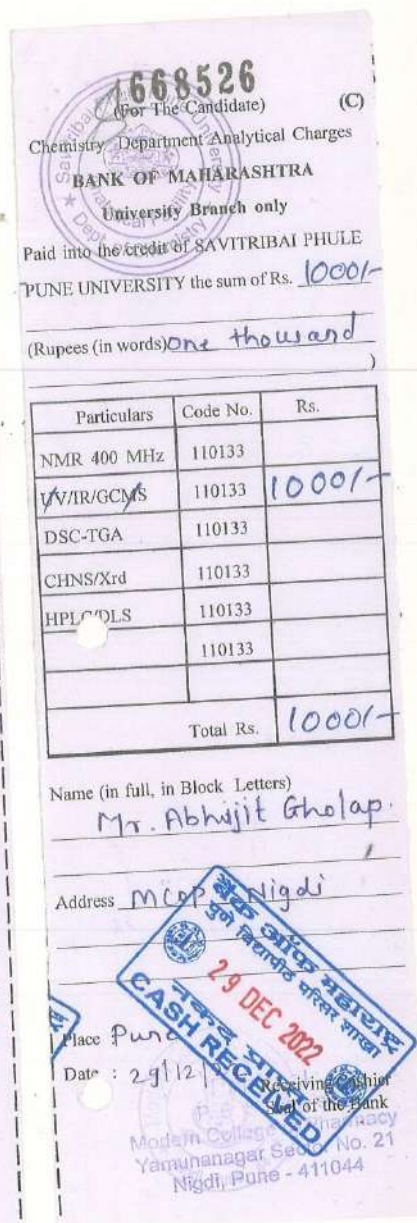 668526
(For The Candidate) (C)
Chemistry Department Analytical Charges
BANK OF MAHARASHTRA
University Branch only
Paid into the credit of SAVITRIBAI PHULE
PUNE UNIVERSITY the sum of Rs. 1000/-
(Rupees (in words) One thousand
)
Particulars Code No. Rs.
NMR 400 MHz 110133
UV/IR/GCMS 110133 1000/-
DSC-TGA 110133
CHNS/Xrd 110133
HPLC/DLS 110133
110133
Total Rs. 1000/-
Name (in full, in Block Letters)
Mr. Abhijit Gholap.
Address MCOP Nigdi
बैंक ऑफ महाराष्ट्र
पुणे विद्यापीठ परिसर शाखा
29 DEC 2022
नकद प्राप्त
CASH RECEIVED
Place : Pune
Date : 29/12/
Receiving Cashier
Seal of the Bank
Modern College Pharmacy
Yamunanagar Sector No. 21
Nigdi, Pune - 411044